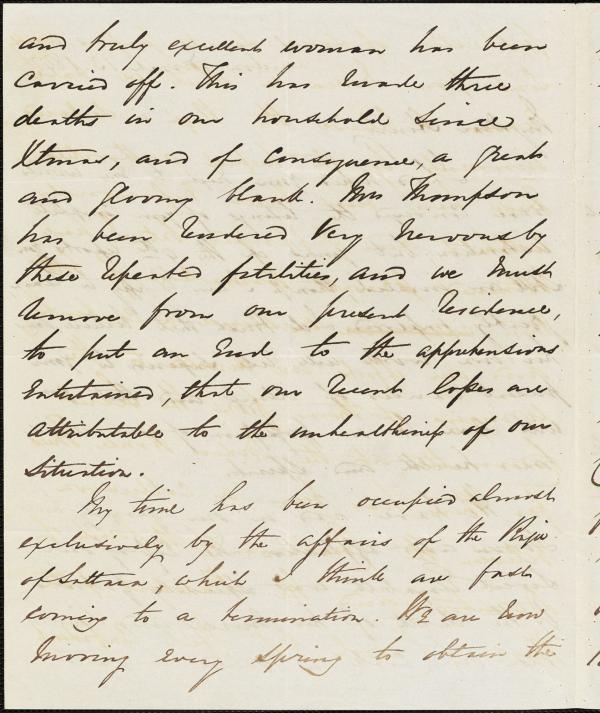 and truly excellent woman has been
carried off. This has made three
deaths in our household since
Xtmas, and of consequence, a great
and gloomy blank. Mrs Thompson
has been rendered very nervous by
these repeated fatalities, and we must
remove from our present residence,
to put an end to the apprehensions
entertained, that our recent losses are
attributable to the unhealthiness of our
situation.
My time has been occupied almost
exclusively by the affairs of the Raja
of Sattara, which I think are fast
coming to a termination. We are now
moving every spring to obtain the